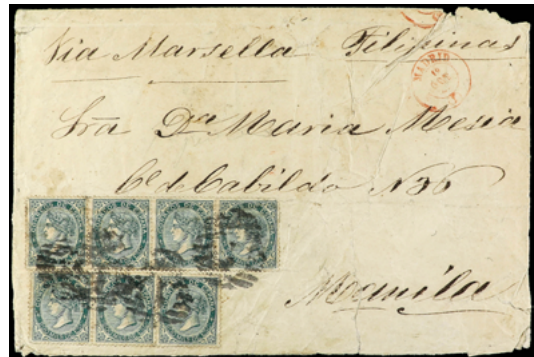 Via Marsella Filipinas
MADRID
Sra Dª Maria Mesia
Cº de Cabildo N36
Manila